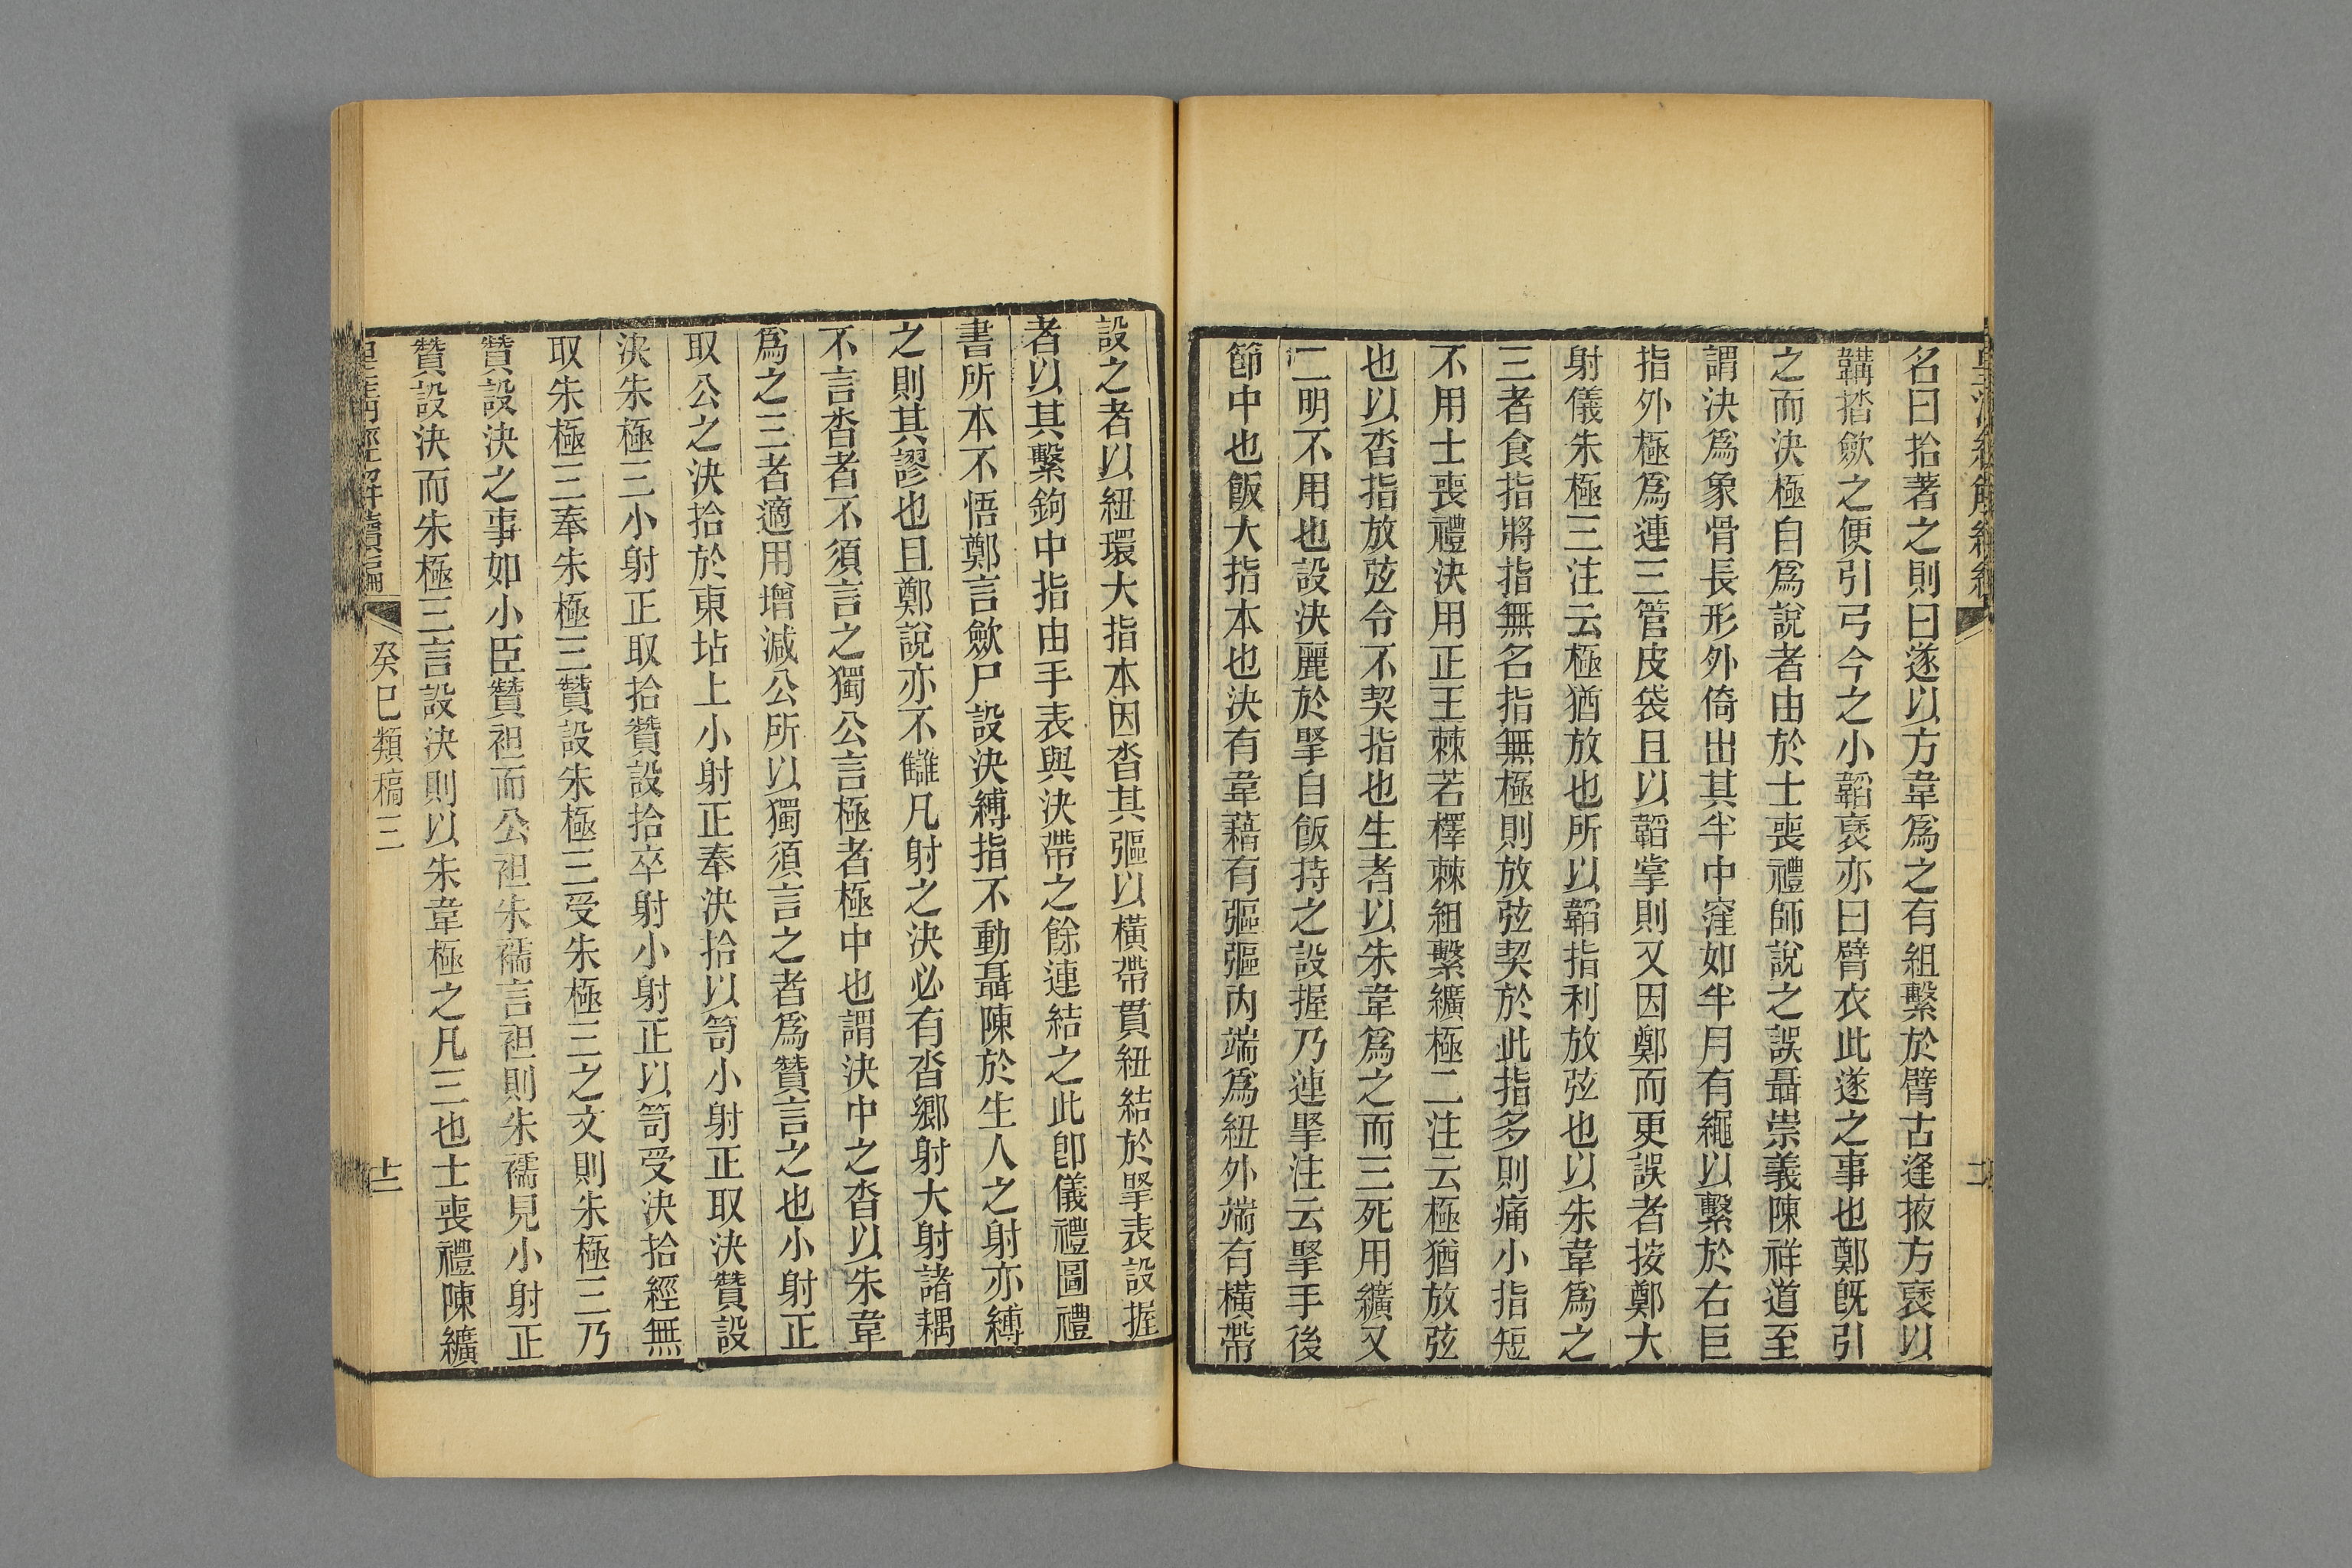 名曰拾著之則曰遂以方韋爲之有組繫於臂古逢掖方襃以
韝揩斂之便引弓今之小韜襃亦曰臂衣此遂之事也鄭旣引
之而決極自爲說者由於士喪禮師說之誤聶崇義陳祥道至
謂決爲象骨長形外倚出其半中窪如半月有繩以繫於右巨
指外極爲連三管皮袋且以韜掌則又因鄭而更誤者按鄭大
射儀朱極三注云極猶放也所以韜指利放弦也以朱韋爲之
三者食指將指無名指無極則放弦契於此指多則痛小指短
不用士喪禮決用正王棘若檡棘組繫纊極二注云極猶放弦
也以沓指放弦令不契指也生者以朱韋爲之而三死用纊又
二明不用也設決麗於掔自飯持之設握乃連掔注云掔手後
節中也飯大指本也決有韋藉有彄彄內端爲紐外端有橫帶
設之者以紐環大指本因沓其彄以橫帶貫紐結於掔表設握
者以其繫鉤中指由手表與決帶之餘連結之此卽儀禮圖禮
書所本不悟鄭言斂尸設決縛指不動聶陳於生人之射亦縛
之則其謬也且鄭說亦不讎凡射之決必有沓鄉射大射諸耦
不言沓者不須言之獨公言極者極中也謂決中之沓以朱韋
爲之三者適用增減公所以獨須言之者爲贊言之也小射正
取公之決拾於東坫上小射正奉決拾以笥小射正取決贊設
決朱極三小射正取拾贊設拾卒射小射正以笥受決拾經無
取朱極三奉朱極三贊設朱極三受朱極三之文則朱極三乃
贊設決之事如小臣贊袒而公袒朱襦言袒則朱襦見小射正
贊設決而朱極三言設決則以朱韋極之凡三也士喪禮陳纊
癸巳類稿三
十二